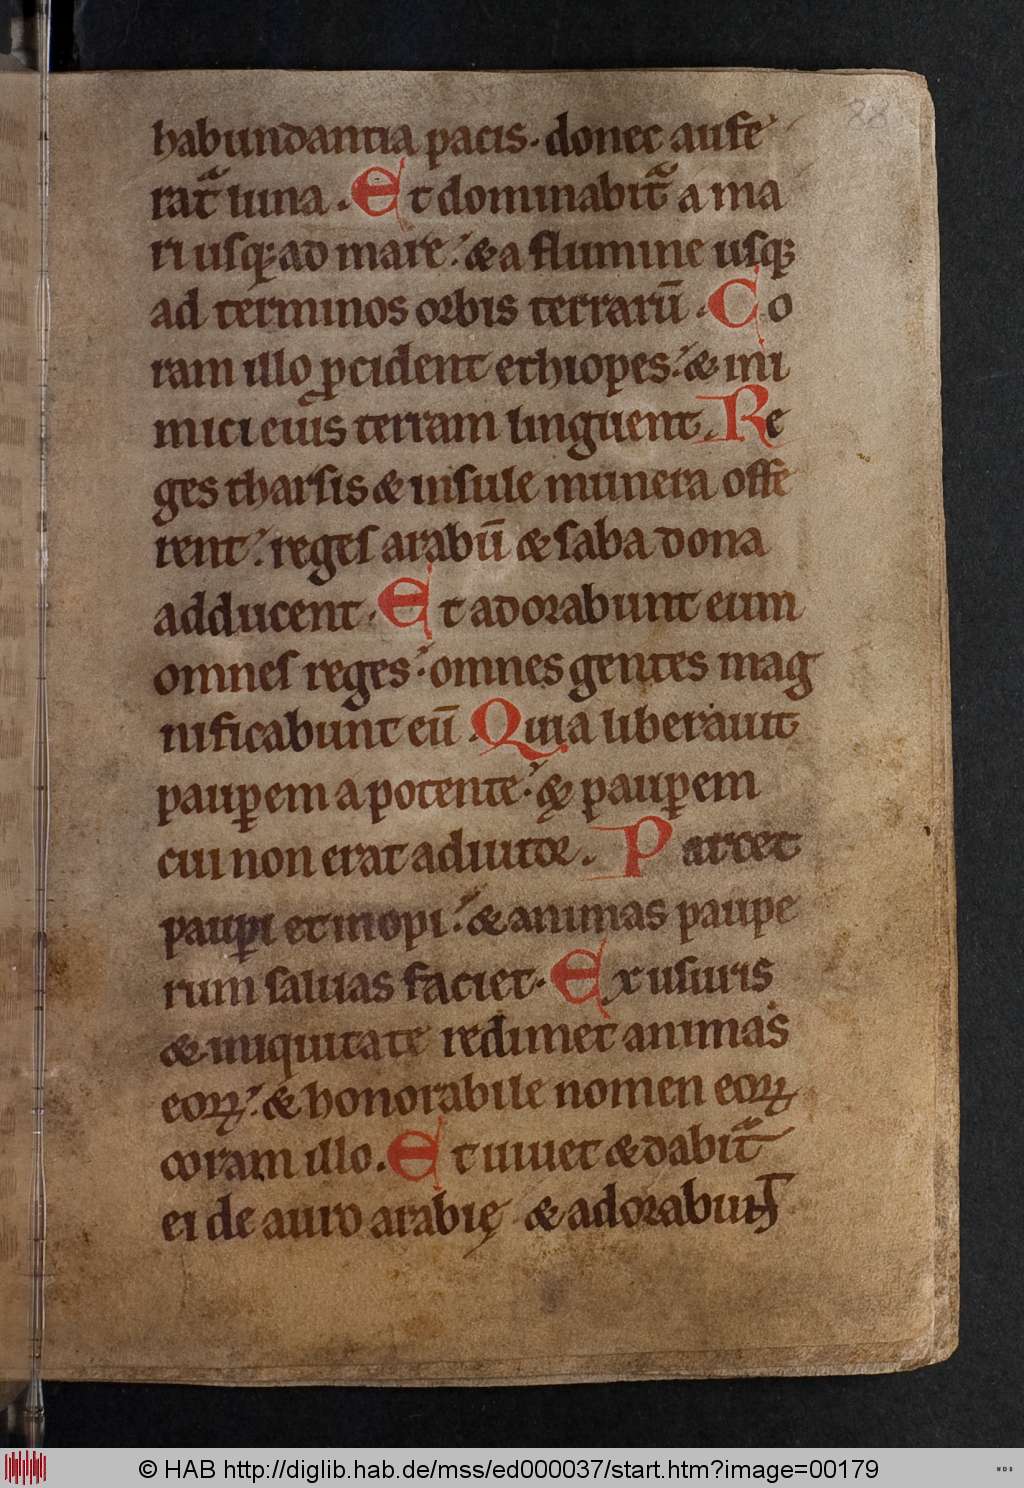 habundantia pacis. donec aufe
rat᷑ luna. Et dominabit᷑ a ma
ri usq; ad mare: & a flumine usq;
ad terminos orbis terrarū. Co
ram illo ꝓcident ethiopes: & ini
mici eius terram linguent. Re
ges tharsis & insule munera offe
rent: reges arabū & saba dona
adducent. Et adorabunt eum
omnes reges: omnes gentes mag
nificabunt eū. Quia liberauit
pauꝑem a potente: & pauꝑem
cui non erat adiutor. Parcet
pauꝑi et inopi: & animas paupe
rum saluas faciet. Ex usuris
& iniquitate redimet animas
eoꝝ: & honorabile nomen eoꝝ
coram illo. Et uiuet & dabit᷑
ei de auro arabię & adorabunt
28
© HAB http://diglib.hab.de/mss/ed000037/start.htm?image=00179